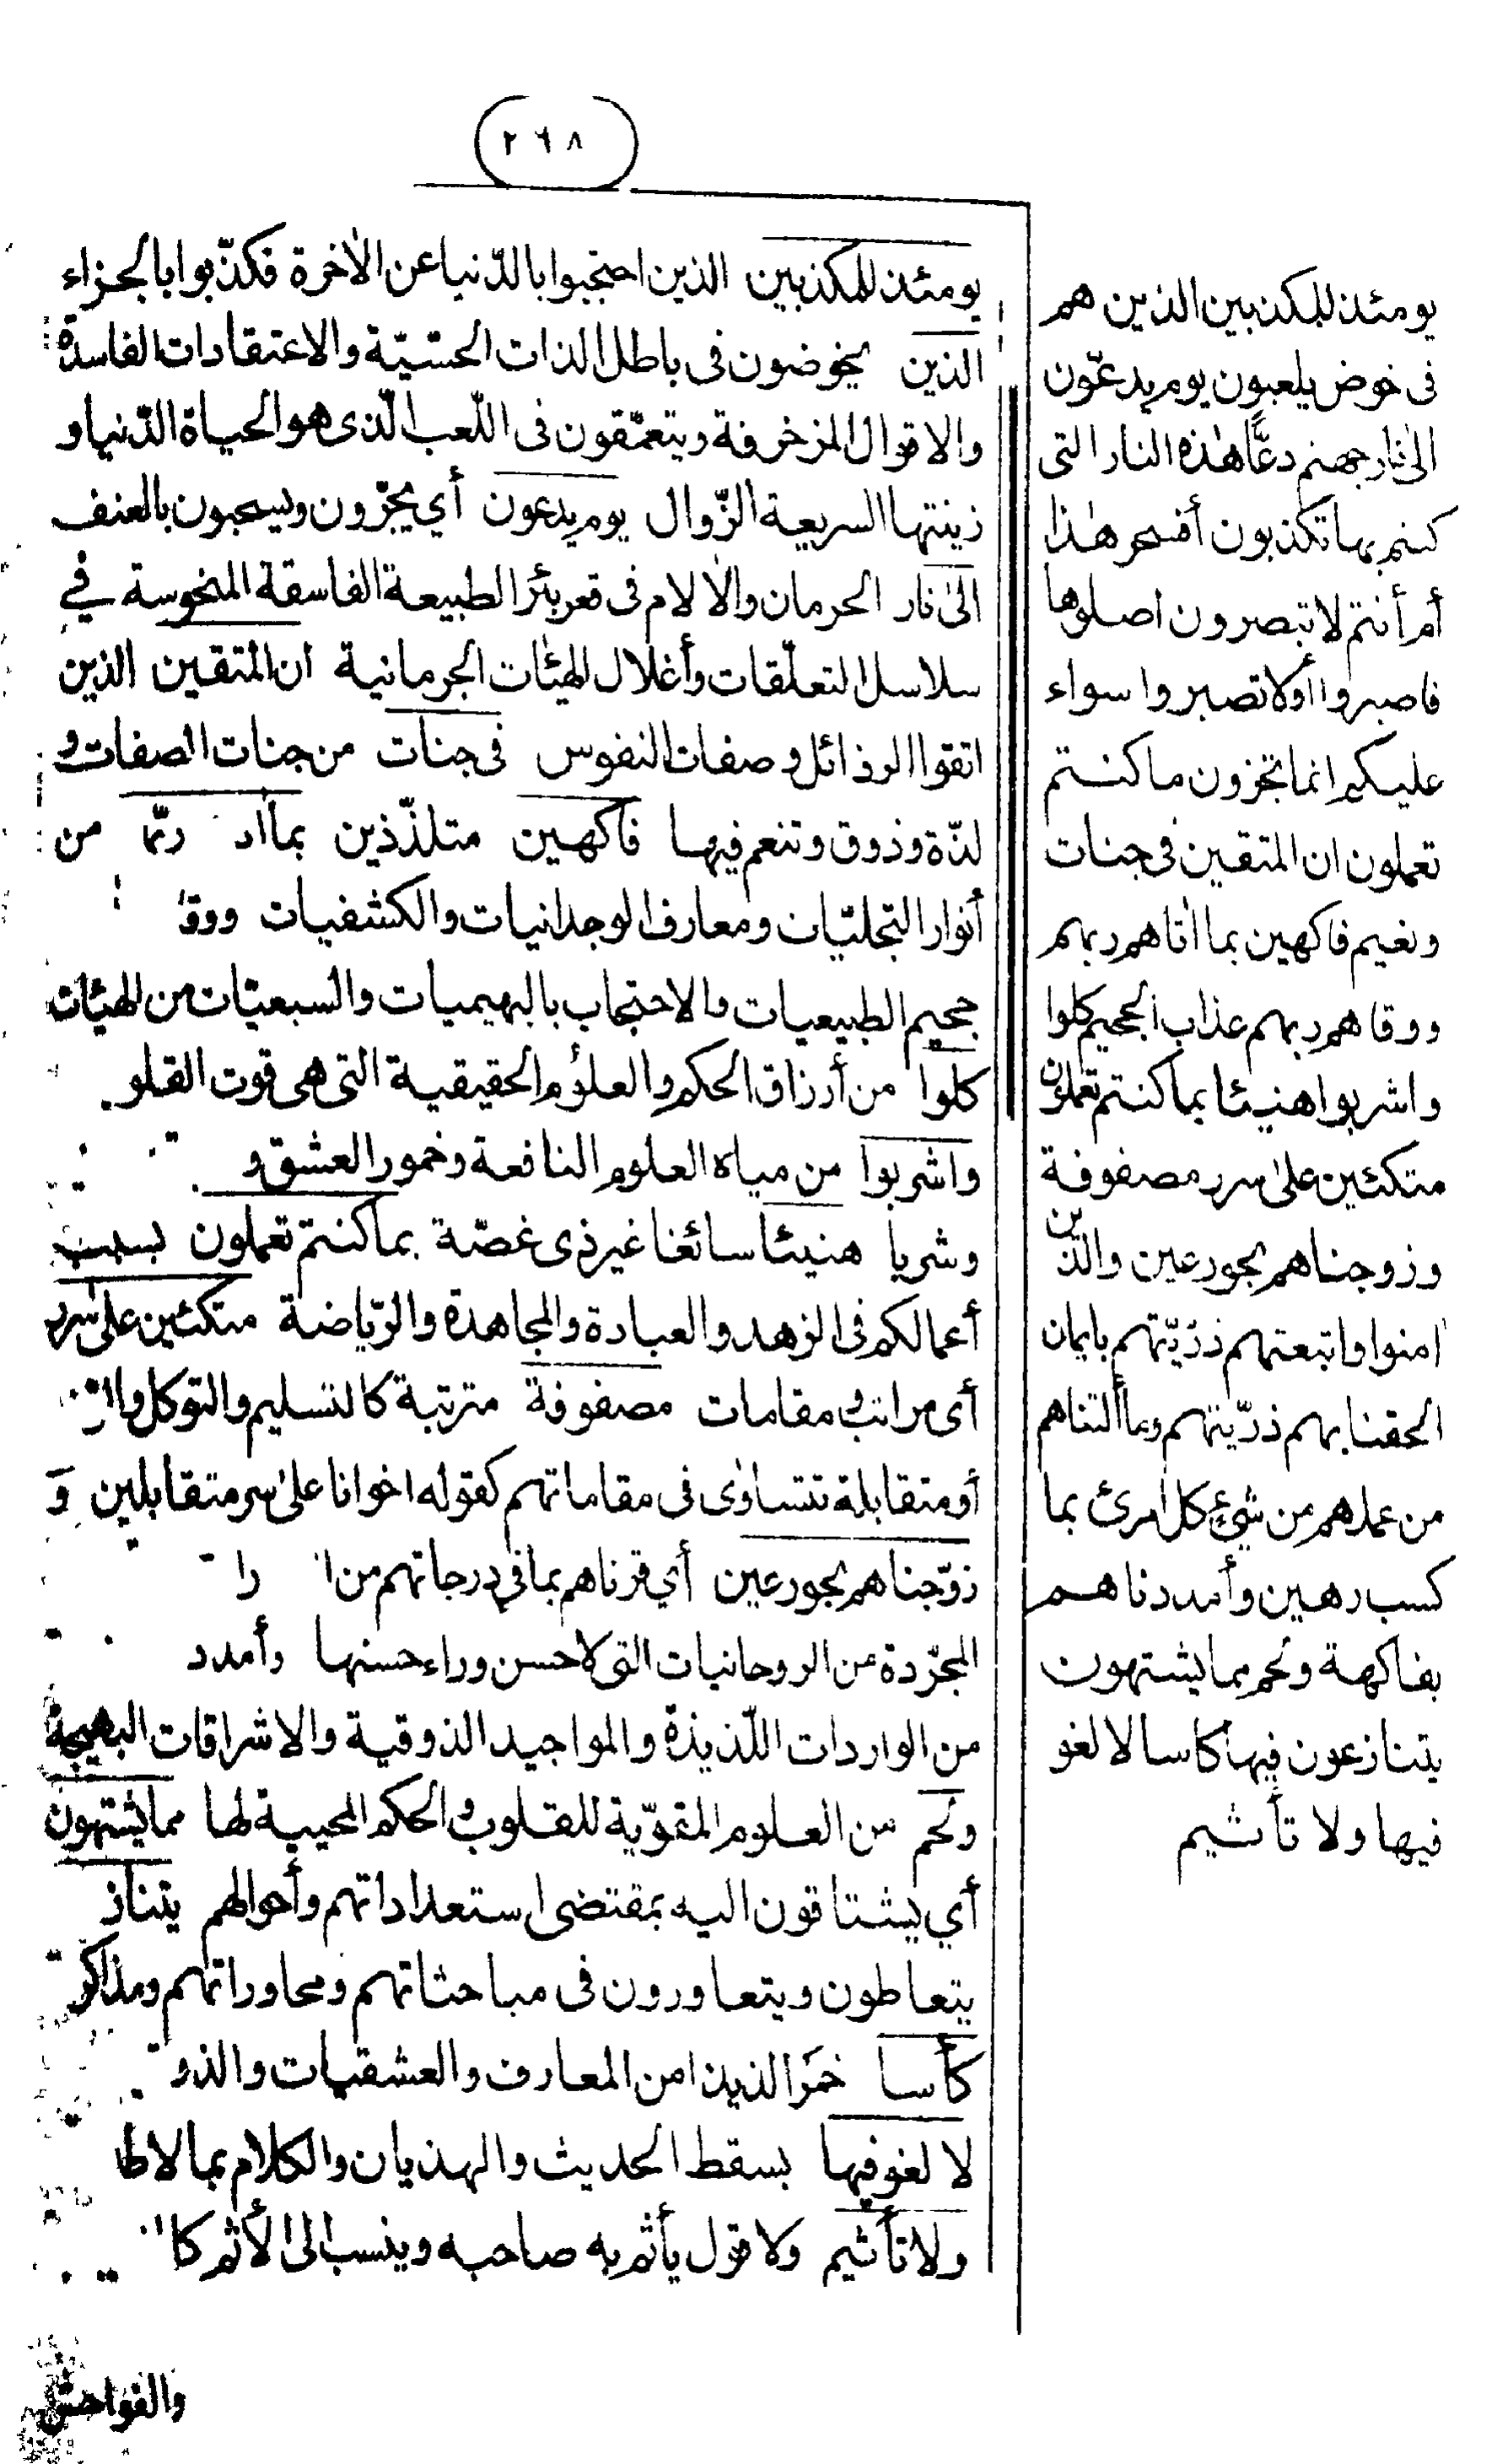 ٢٦٨
يومئذ للمكذبين الذين هم
فى خوض يلعبون يوم يدعّون
الى نار جهنم دعًّا هذه النار التى
كنتم بها تكذبون أفسحر هذا
أم أنتم لا تبصرون اصلوها
فاصبروا أولا تصبروا سواء
عليكم انما تجزون ما كنتم
تعملون ان المتقين فى جنات
ونعيم فاكهين بما اٰتاهم ربهم
ووقاهم ربهم عذاب الجحيم كلوا
واشربوا هنيئا بما كنتم تعملون
متكئين على سرر مصفوفة
وزوجناهم بحور عين والذين
امنوا واتبعتهم ذرّيّتهم بايمان
الحقنا بهم ذرّيتهم وما ألتناهم
من عملهم من شئ كل امرئ بما
كسب رهين وأمددناهم
بفاكهة ولحم مما يشتهون
يتنازعون فيها كاسا لا لغو
فيها ولا تأثيم
يومئذ للمكذبين الذين احتجبوا بالدّنيا عن الاٰخرة فكذّبوا بالجزاء
الذين يخوضون فى باطل الذات الحسّيّة والاعتقادات الفاسدة
والاقوال المزخرفة ويتعمّقون فى اللّعب الّذى هو الحياة الدّنيا و
زينتها السريعة الزّوال يوم يدعون أي يجرّون ويسحبون بالعنف
الى نار الحرمان والاٰلام فى قعر بئر الطبيعة الفاسقة المنحوسة في
سلاسل التعلّقات وأغلال الهيٰات الجرمانية ان المتقين الذين
اتقوا الرذائل وصفات النفوس فى جنات من جنات الصفات و
لذّة وذوق وتنعم فيها فاكهين متلذّذين بما ربّهم من
أنوار التجليّات ومعارف الوجدانيات والكشفيات
جحيم الطبيعيات والاحتجاب بالبهيميات والسبعيّات من الهيٰات
كلوا من أرزاق الحكم والعلوم الحقيقية التى هى قوت
واشربوا من مياه العلوم النافعة وخمور العشق و
وشربا هنيئا سائغا غير ذى غصّة بما كنتم تعملون بسبب
أعمالكم فى الزهد والعبادة والمجاهدة والرّياضة متكئين على سرر
أى مراتب ومقامات مصفوفة مترتبة كالتسليم والتوكل
أو متقابلة تتساوى فى مقاماتهم كقوله اخوانا على سرر متقابلين وَ
زوّجناهم بحور عين أي قرناهم بما في درجاتهم من
المجرّدة من الروحانيات التى لا حسن وراء حسنها
من الواردات اللّذيذة والمواجيد الذوقية والاشراقات البهيجة
ولحم من العلوم المقوّية للقلوب والحكم المحيية لها مما يشتهون
أي يشتاقون اليه بمقتضى استعداداتهم وأحوالهم
يتعاطون ويتعاورون فى مباحثاتهم ومحاوراتهم
كأسا خمَرا لذيذا من المعارف والعشقيات
لا لغو فيها بسقط الحديث والهذيان والكلام بما لا
ولا تأثيم ولا قول يأثم به صاحبه وينسب الى الأثم
والفواحش